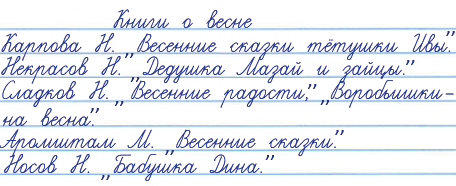 Книги о весне
Карпова Н. „Весенние сказки тётушки Ивы".
Некрасов Н. „Дедушка Мазай и зайцы."
Сладков Н. „Весенние радости," „Воробьишки-
на весна".
Аромштам М. „Весенние сказки."
Носов Н. „Бабушка Дина."